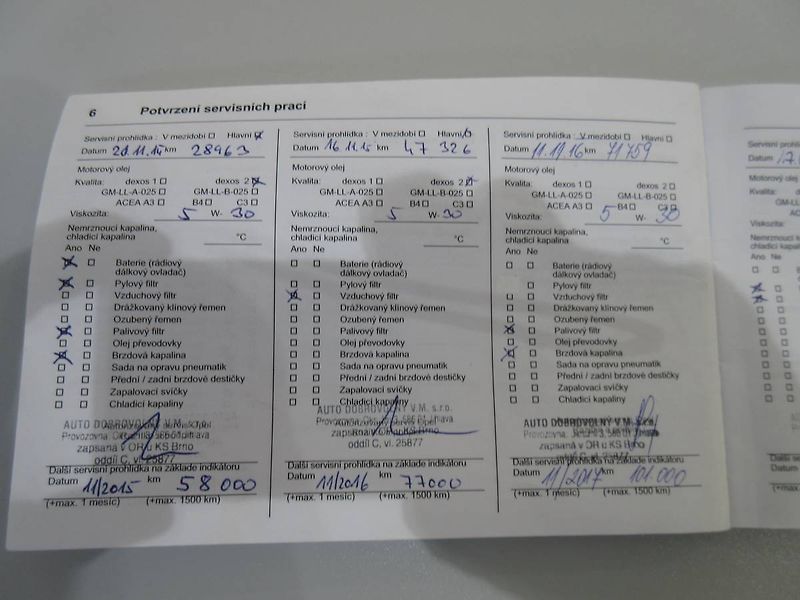 6 Potvrzení servisních prací
Servisní prohlídka : V mezidobí Hlavní
Datum 20.11.14 km 28963
Motorový olej
Kvalita: dexos 1 dexos 2
GM-LL-A-025 GM-LL-B-025
ACEA A3 B4 C3
Viskozita: 5 W- 30
Nemrznoucí kapalina,
chladicí kapalina °C
Ano Ne
Baterie (rádiový
dálkový ovladač)
Pylový filtr
Vzduchový filtr
Drážkovaný klínový řemen
Ozubený řemen
Palivový filtr
Olej převodovky
Brzdová kapalina
Sada na opravu pneumatik
Přední / zadní brzdové destičky
Zapalovací svíčky
Chladicí kapaliny
AUTO DOBROVOLNÝ V.M. s.r.o.
Provozovna:
zapsaná v OR u KS Brno
oddíl C, vl. 25877
Další servisní prohlídka na základě indikátoru
Datum 11/2015 km 58 000
(+max. 1 měsíc) (+max. 1500 km)
Servisní prohlídka : V mezidobí Hlavní
Datum 16.11.15 km 47 326
Motorový olej
Kvalita: dexos 1 dexos 2
GM-LL-A-025 GM-LL-B-025
ACEA A3 B4 C3
Viskozita: 5 W- 30
Nemrznoucí kapalina,
chladicí kapalina °C
Ano Ne
Baterie (rádiový
dálkový ovladač)
Pylový filtr
Vzduchový filtr
Drážkovaný klínový řemen
Ozubený řemen
Palivový filtr
Olej převodovky
Brzdová kapalina
Sada na opravu pneumatik
Přední / zadní brzdové destičky
Zapalovací svíčky
Chladicí kapaliny
AUTO DOBROVOLNÝ V.M. s.r.o.
Provozovna:
zapsaná v OR u KS Brno
oddíl C, vl. 25877
Další servisní prohlídka na základě indikátoru
Datum 11/2016 km 77000
(+max. 1 měsíc) (+max. 1500 km)
Servisní prohlídka : V mezidobí Hlavní
Datum 11.11.16 km 71759
Motorový olej
Kvalita: dexos 1 dexos 2
GM-LL-A-025 GM-LL-B-025
ACEA A3 B4 C3
Viskozita: 5 W- 30
Nemrznoucí kapalina,
chladicí kapalina °C
Ano Ne
Baterie (rádiový
dálkový ovladač)
Pylový filtr
Vzduchový filtr
Drážkovaný klínový řemen
Ozubený řemen
Palivový filtr
Olej převodovky
Brzdová kapalina
Sada na opravu pneumatik
Přední / zadní brzdové destičky
Zapalovací svíčky
Chladicí kapaliny
AUTO DOBROVOLNÝ V.M. s.r.o.
zapsaná v OR u KS Brno
Další servisní prohlídka na základě indikátoru
Datum 11/2017 km 101.000
(+max. 1 měsíc) (+max. 1500 km)
Servisní
Datum
Motorový olej
Kvalita:
Viskozita:
Nemrznoucí
chladicí
Ano Ne
Další
Datum
(+max.